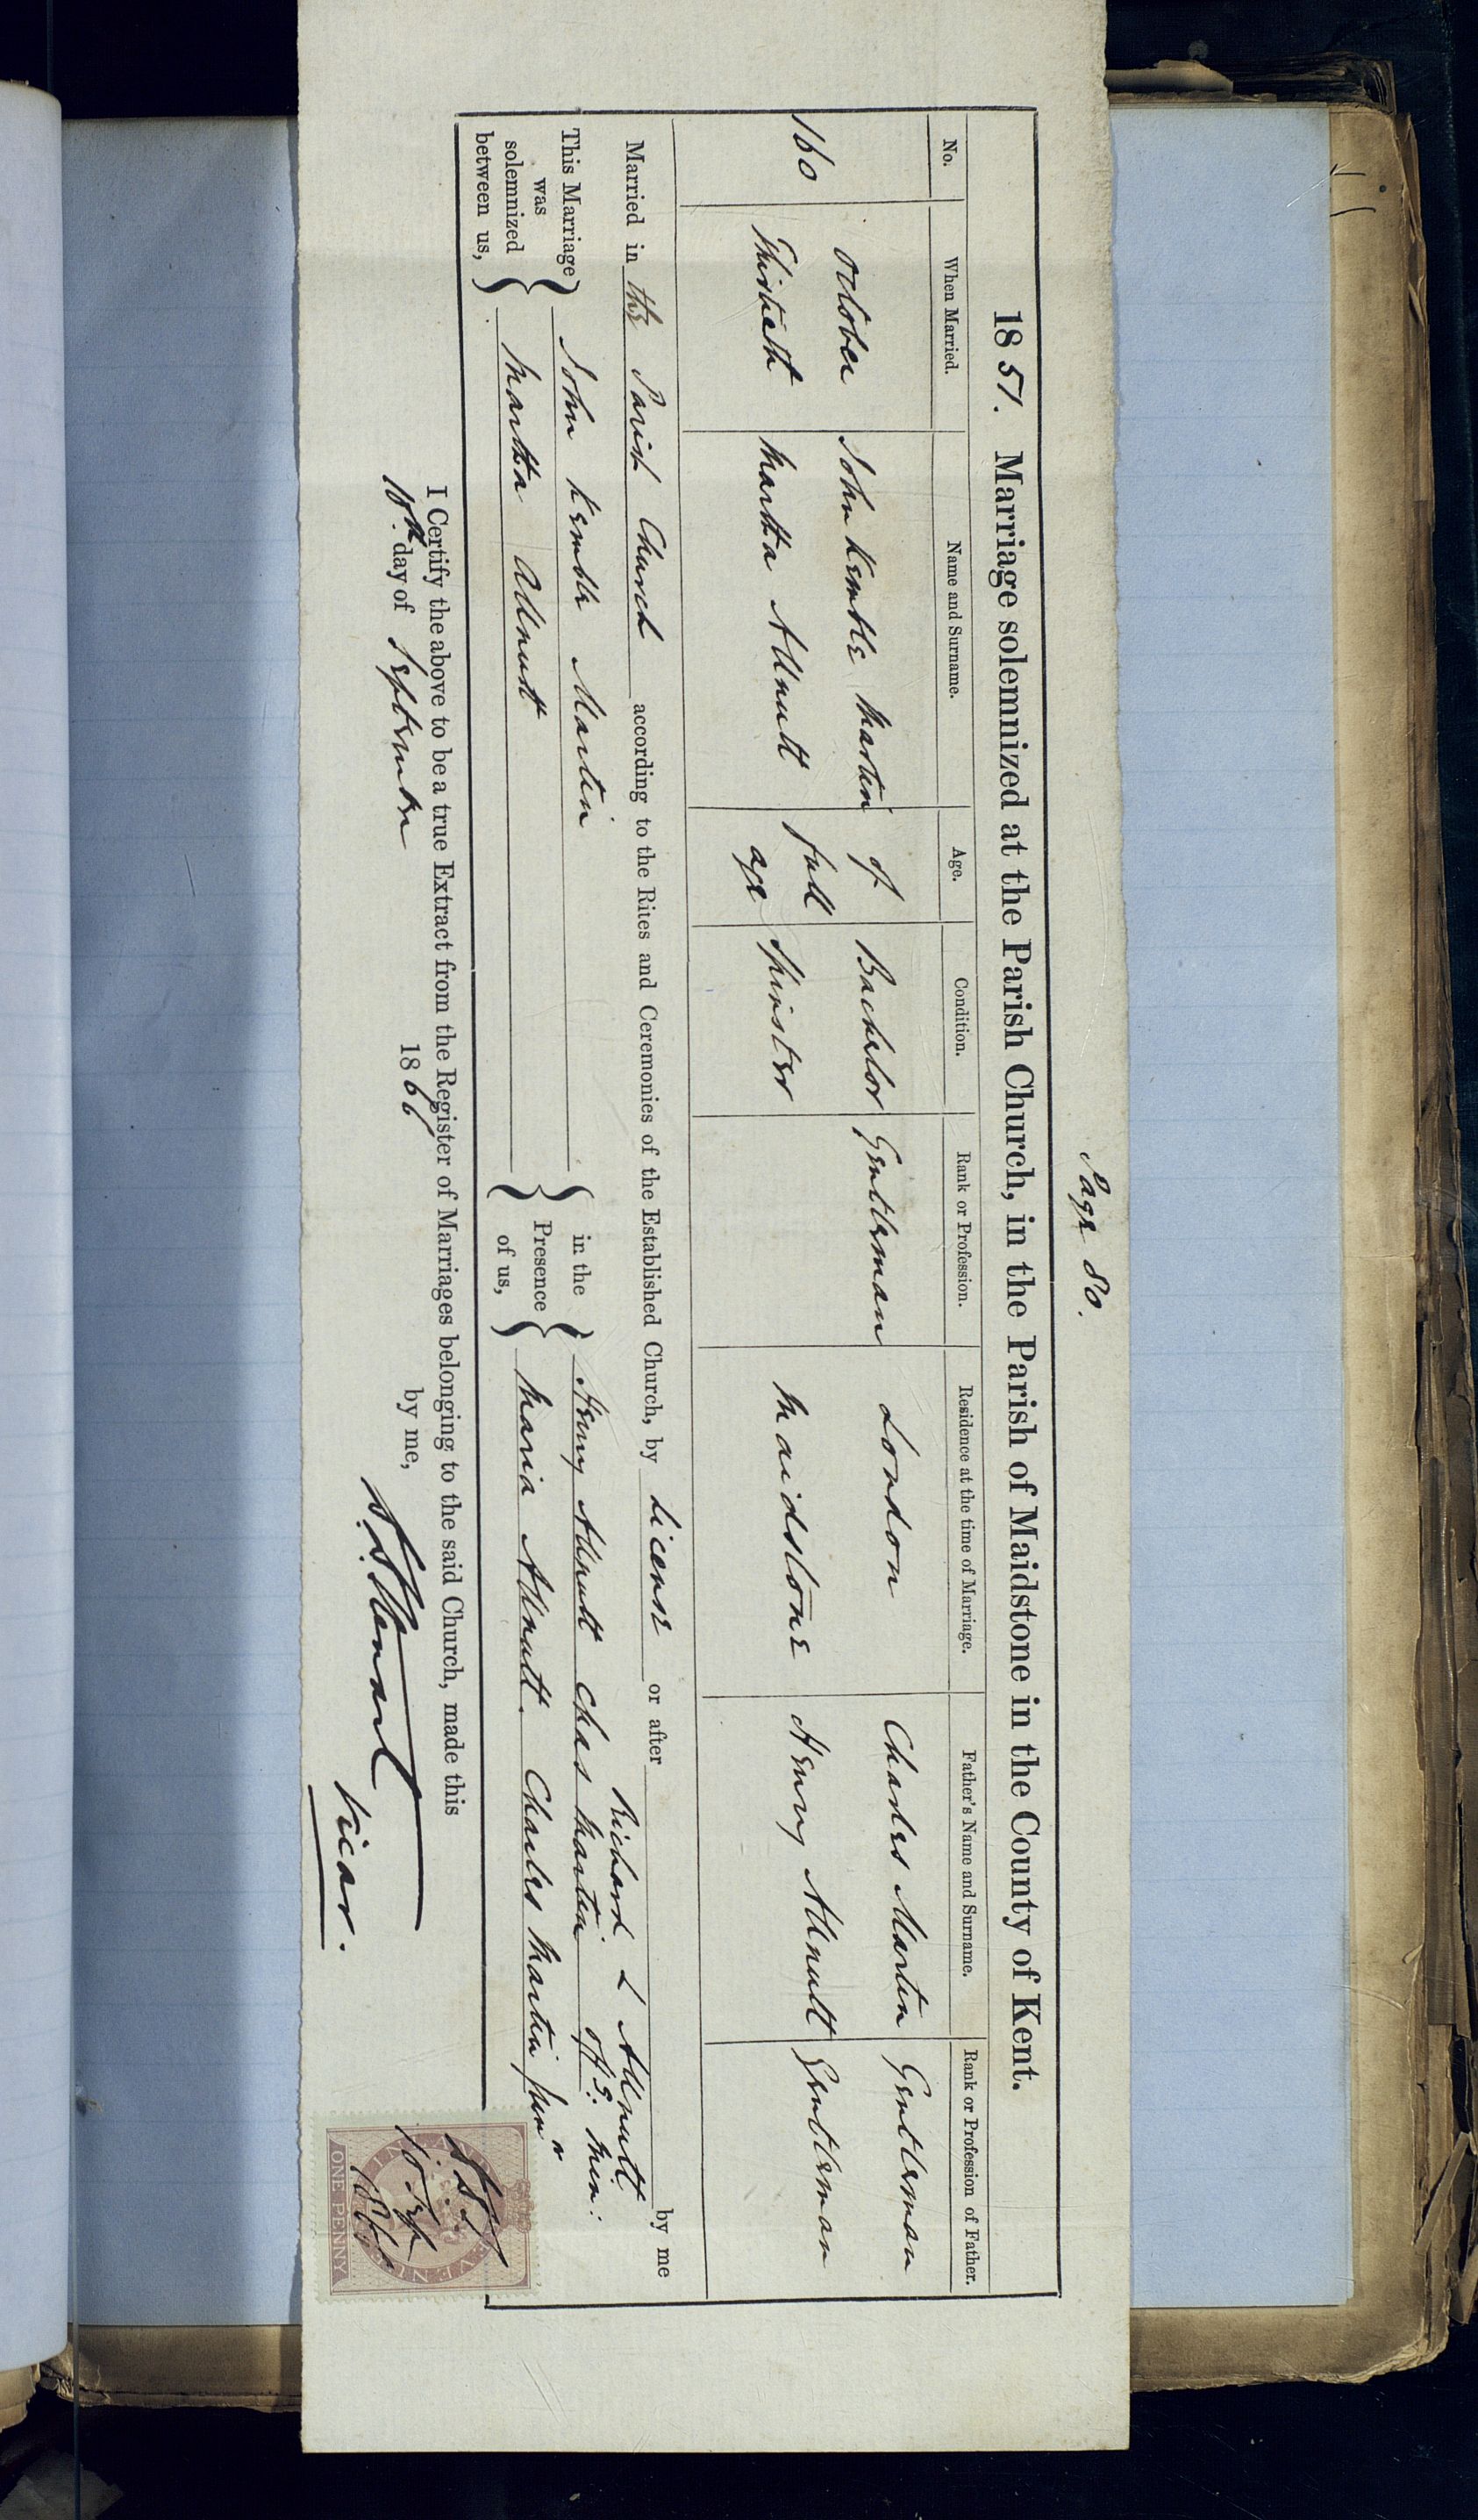 Page 80.
1851. Marriage solemnized at the Parish Church, in the Parish of Maidstone in the County of Kent.
No. When Married. Name and Surname. Age. Condition. Rank or Profession. Residence at the time of Marriage. Father's Name and Surname. Rank or Profession of Father.
160 October John Kemble Martin of Bachelor Gentleman London Charles Martin Gentleman
Thirtieth Martha Allnutt full age Spinster Maidstone Henry Allnutt Gentleman
Married in the Parish Church according to the Rites and Ceremonies of the Established Church, by License or after by me
Richard L Allnutt
This Marriage was solemnized between us, John Kemble Martin
Martha Allnutt
in the Presence of us, Henry Allnutt Chas Martin Offg: Min:
Maria Allnutt. Charles Martin Junr
I Certify the above to be a true Extract from the Register of Marriages belonging to the said Church, made this
18th day of September 1866 by me,
Vicar.
INLAND REVENUE
ONE PENNY